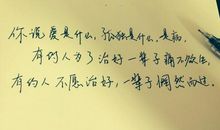 你说爱是什么,孤独是什么,是病,
有的人为了治好一辈子痛不欲生,
有的人不愿治好,一辈子偶然而过。